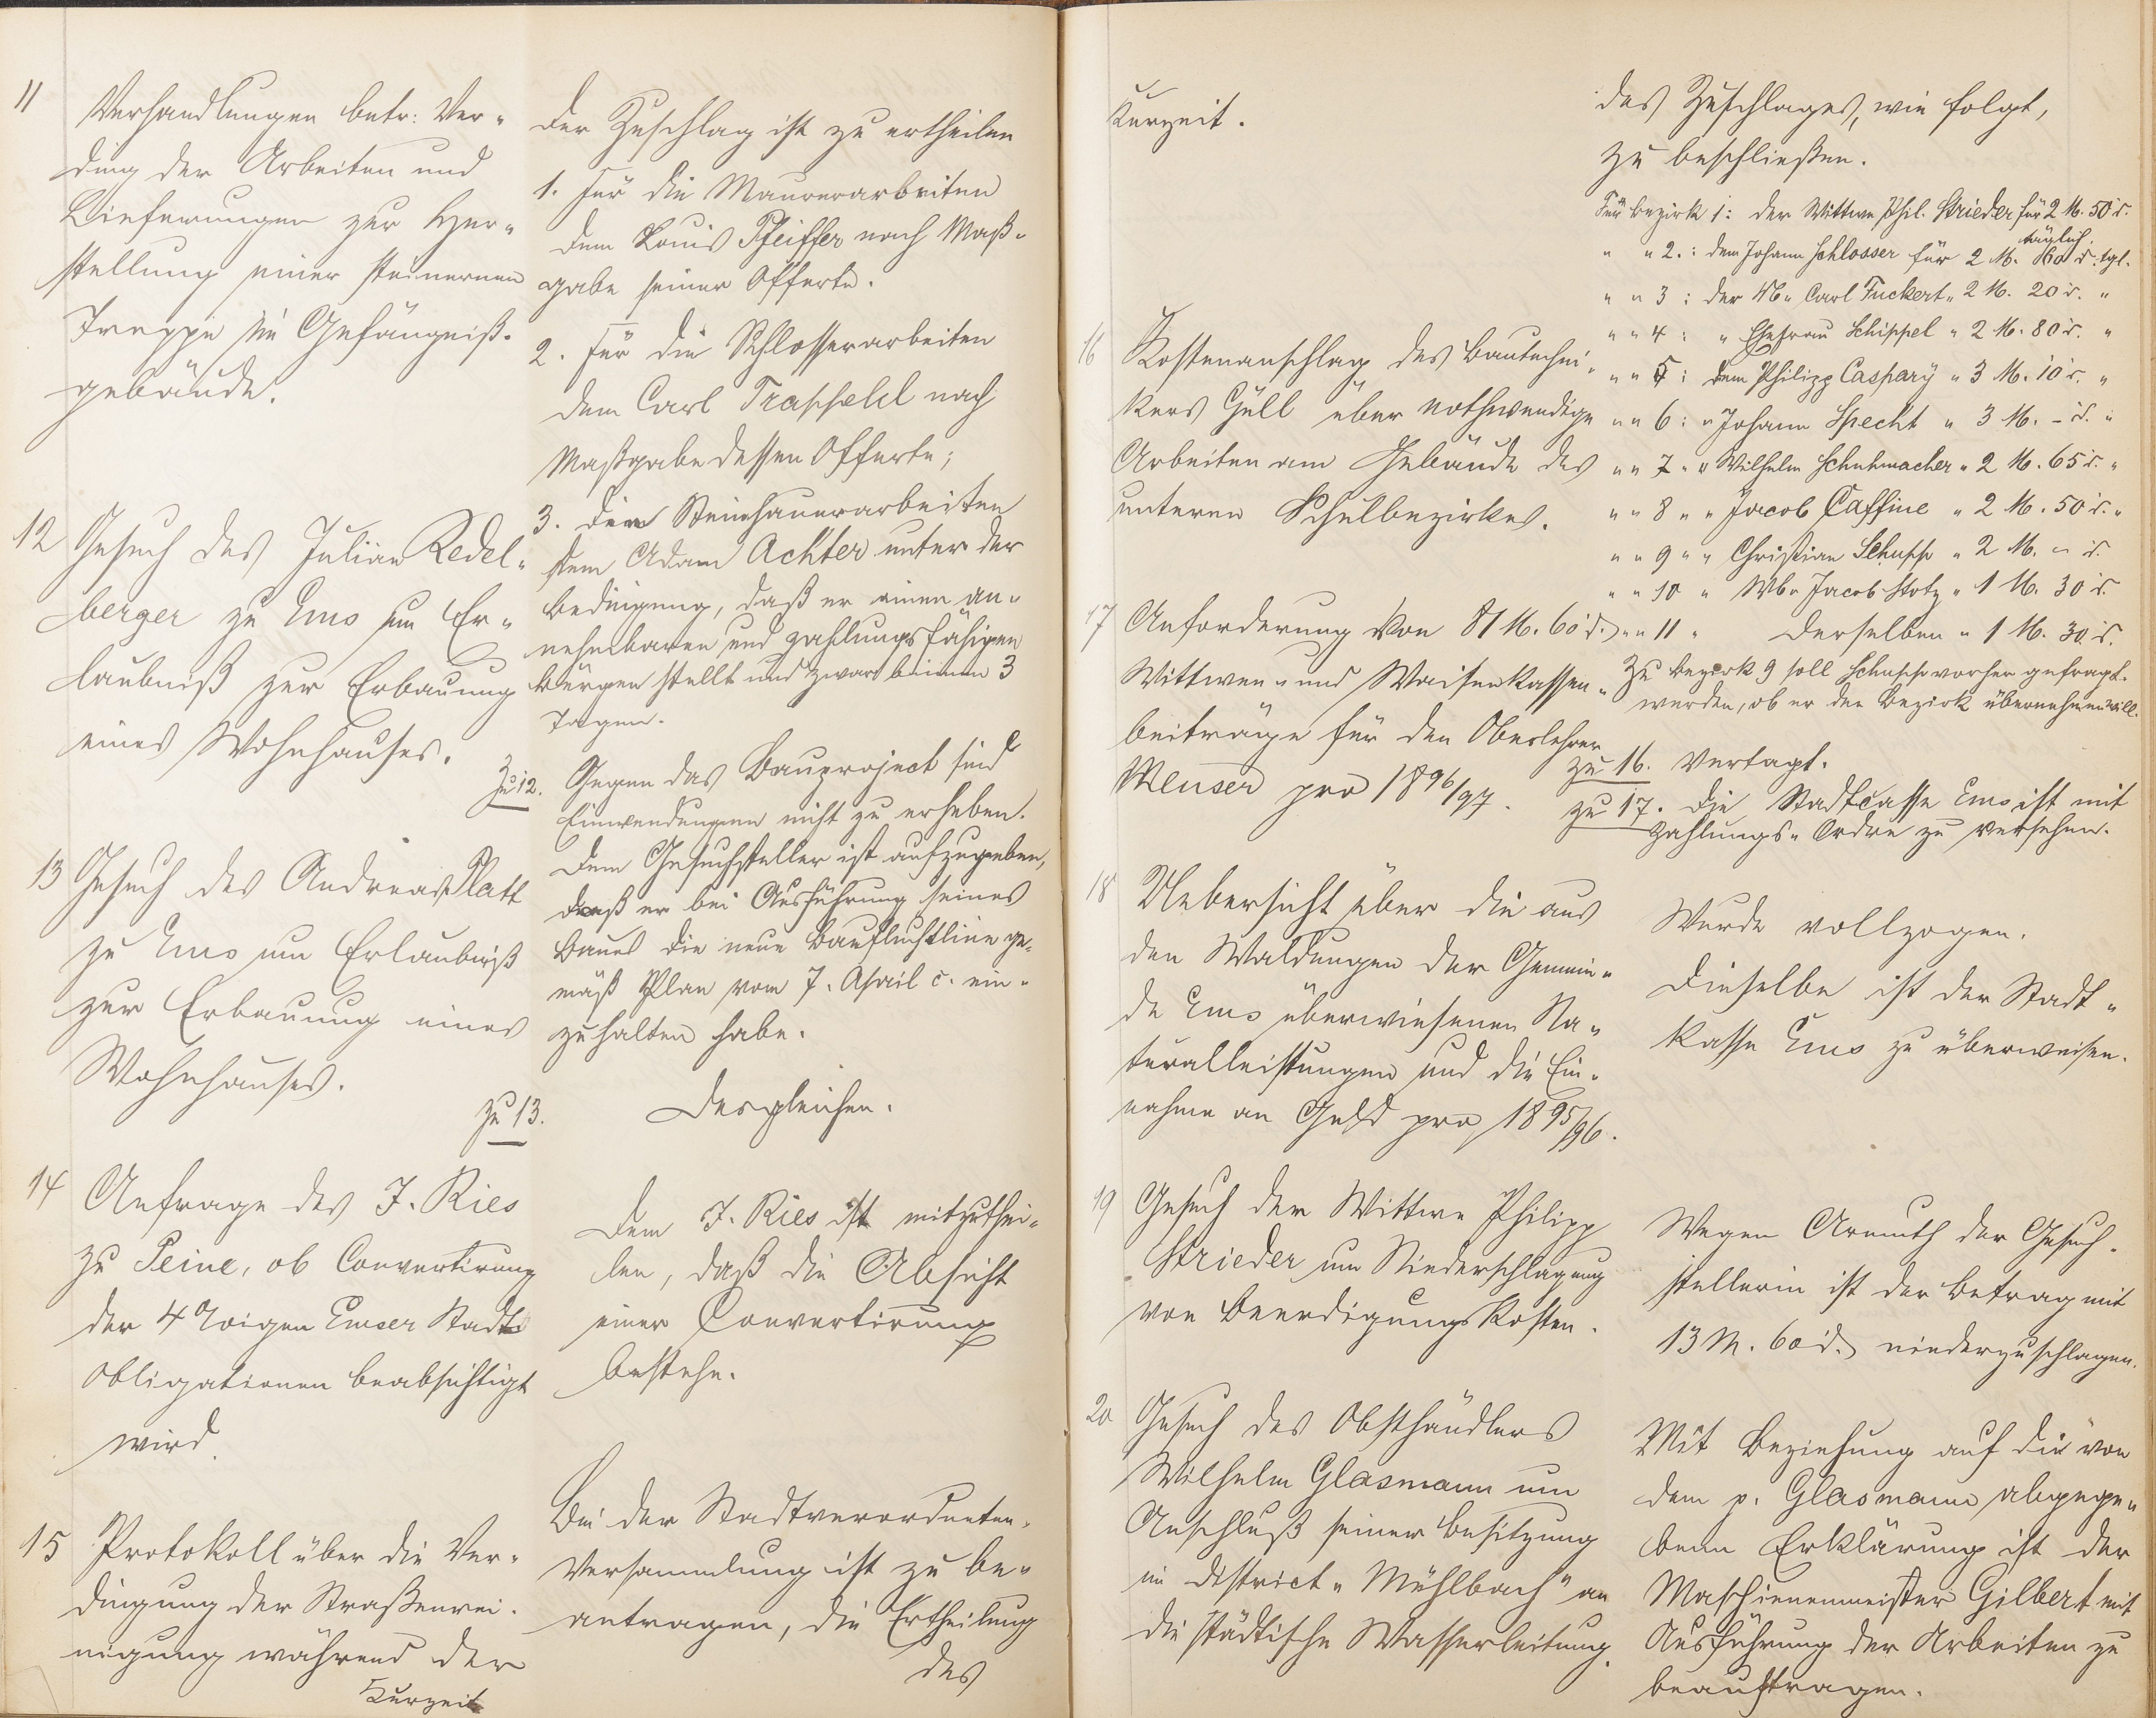 11 Verhandlungen betr: Ver-
ding der Arbeiten und
Lieferungen zur Her-
stellung einer steinernen
Treppe im Gefängniß-
gebäude.
Der Zuschlag ist zu ertheilen
1. für die Maurerarbeiten
dem Louis Pfeiffer nach Maß-
gabe seiner Offerte.
2. für die Schlosserarbeiten
dem Carl nach
Maßgabe dessen Offerte;
3. den Steinhauerarbeiten
dem Adam Achter unter der
Bedingung, daß er einen an-
nehmbaren und zahlungsfähigen
Bürgen stellt und zwar binnen 3
Tagen.
12 Gesuch des Julian Redel-
berger zu Ems um Er-
laubniß zur Erbauung
eines Wohnhauses.
Zu 12. Gegen das Bauproject sind
Einwendungen nicht zu erheben.
Dem Gesuchsteller ist aufzugeben,
daß er bei Ausführung seines
Baues die neue Baufluchtlinie ge-
mäß Plan vom 7. April c. ein-
zuhalten habe.
13 Gesuch des Andreas Platt
zu Ems um Erlaubniß
zur Erbauung eines
Wohnhauses.
Zu 13. Desgleichen.
14 Anfrage des J. Ries
zu Peine, ob Convertirung
der 4%igen Emser Stadt-
obligationen beabsichtigt
wird.
Dem J. Ries ist mitzuthei-
len, daß die Absicht
einer Convertirung
bestehe.
15 Protokoll über die Ver-
dingung der Straßenrei-
nigung während der
Kurzeit
Bei der Stadtverordneten-
Versammlung ist zu be-
antragen, die Ertheilung
des
Kurzeit.
des Zuschlages, wie folgt,
zu beschließen.
Für Bezirk 1: der Wittwe Phil. Strieder für 2 M. 50 d.
täglich.
" " 2.: dem Johann Schlosser für 2 M. 60 d. tgl.
" " 3: der Ww. Carl Fuckert " 2 M. 20 d. "
" " 4: " Ehefrau Schippel " 2 M. 80 d. "
" " 5: dem Philipp Caspary " 3 M. 10 d. "
" " 6: " Johann Specht " 3 M. - d. "
" " 7 " " Wilhelm Schuhmacher " 2 M. 65 d. "
" " 8 " " Jacob Caffine " 2 M. 50 d. "
" " 9 " " Christian Schupp " 2 M. - d.
" " 10 " Ww. Jacob Stotz " 1 M. 30 d.
" " 11 " derselben " 1 M. 30 d.
Zu Bezirk 9 soll Schupp vorher gefragt
werden, ob er den Bezirk übernehmen will.
16 Kostenanschlag des Bautechni-
kers Güll über nothwendige
Arbeiten am Gebäude des
unteren Schulbezirkes.
zu 16. Vertagt.
17 Anforderung von 81 M. 60 d.
Wittwen- und Waisenkassen-
beiträge für den Oberlehrer
Meuser pro 1896/97.
zu 17. Die Stadtcasse Ems ist mit
Zahlungs-Ordre zu versehen.
18 Uebersicht über die aus
den Waldungen der Gemein-
de Ems überwiesenen Na-
turalleistungen und die Ein-
nahme an Geld pro 1895/96.
Wurde vollzogen.
Dieselbe ist der Stadt-
kasse Ems zu überweisen.
19 Gesuch der Wittwe Philipp
Strieder um Niederschlagung
von Beerdigungskosten.
Wegen Armuth der Gesuch-
stellerin ist der Betrag mit
13 M. 60 d. niederzuschlagen.
20 Gesuch des Obsthändlers
Wilhelm Glasmann um
Anschluß seiner Besitzung
im District "Mühlbach" an
die städtische Wasserleitung.
Mit Beziehung auf die von
dem p. Glasmann abgege-
benen Erklärung ist der
Maschienenmeister Gilbert mit
Ausführung der Arbeiten zu
beauftragen.